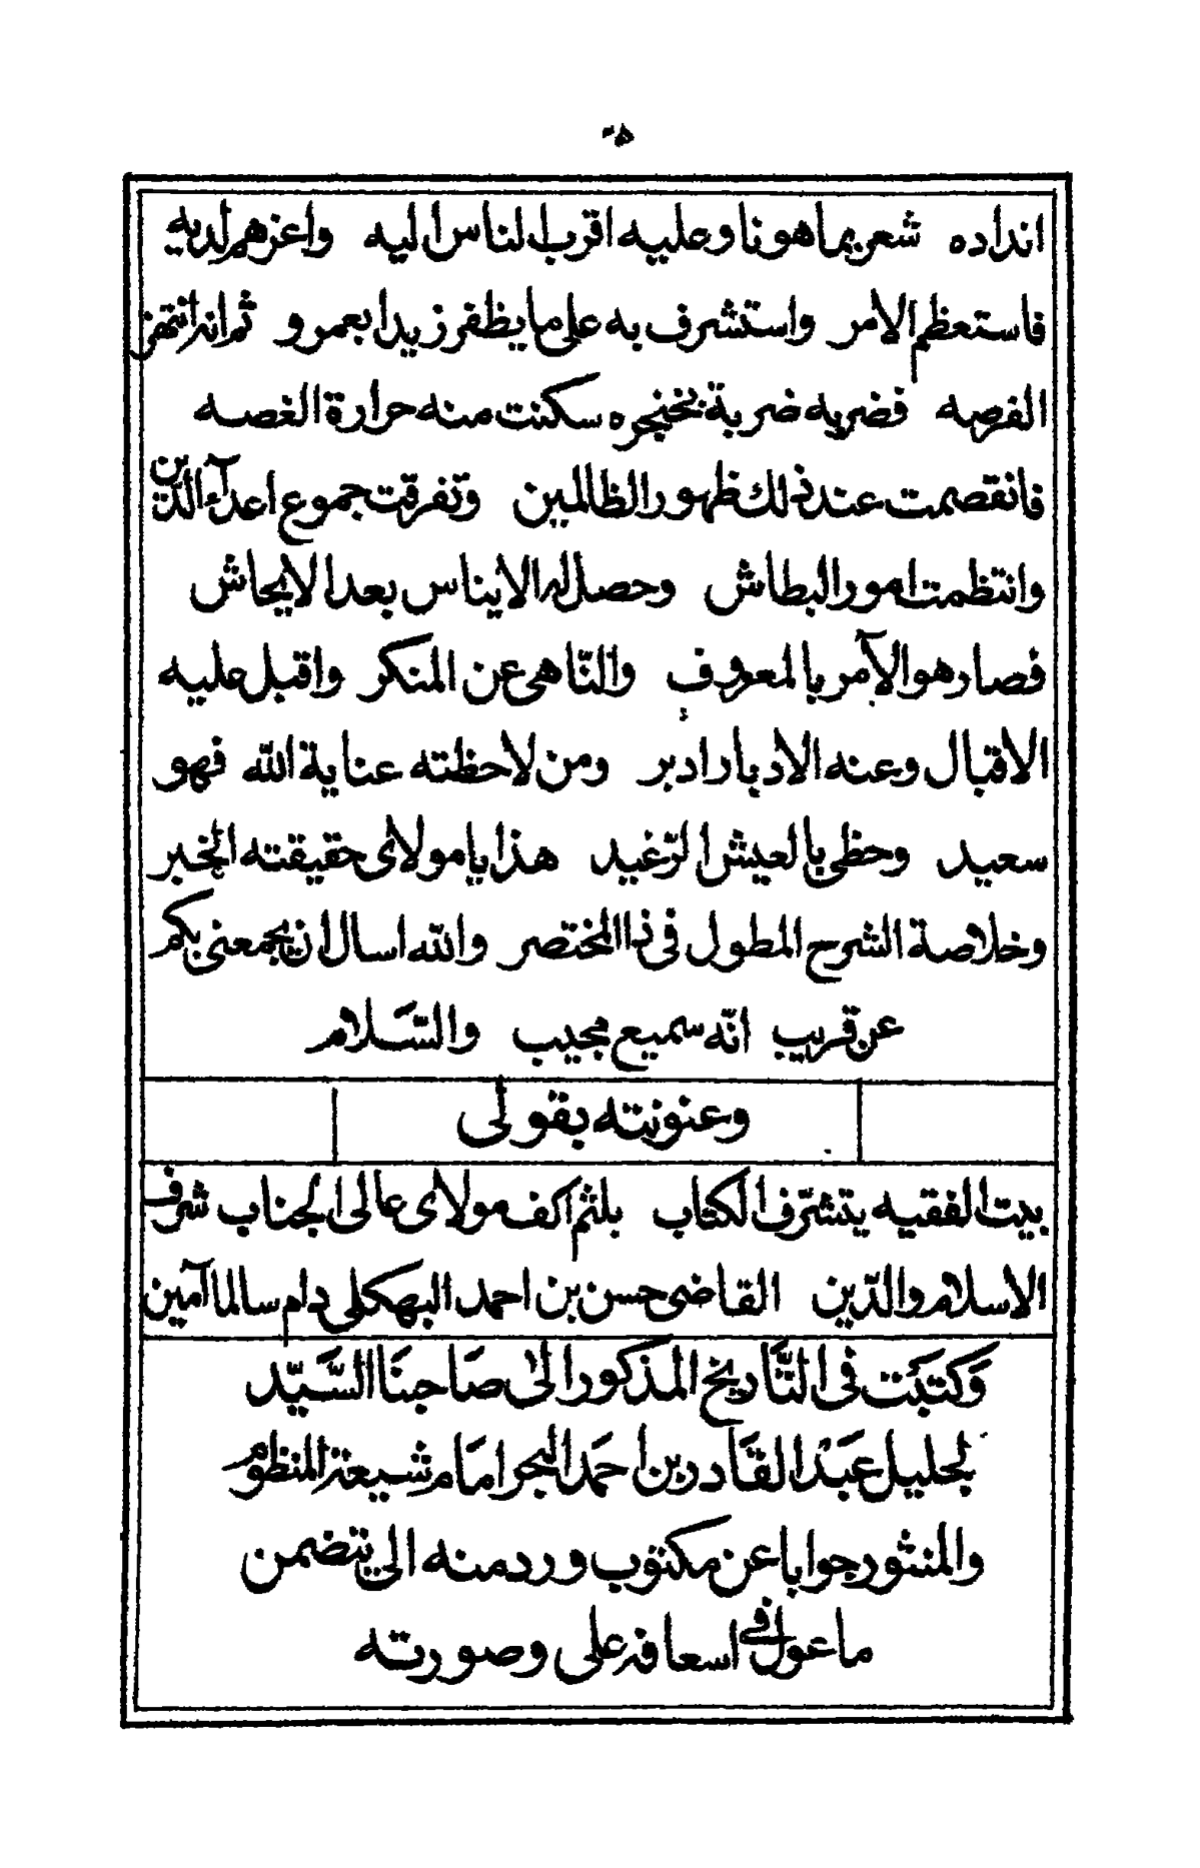 انداده شعر بما هو ناو عليه اقرب الناس اليه واعزهم لديه
فاستعظم الامر واستشرف به على ما يظفر زيدا بعمرو ثم انه انتهز
الفرصه فضربه ضربة بخنجره سكنت منه حرارة الغصه
فانقصمت عند ذلك ظهور الظالمين وتفرقت جموع اعدآء الدّين
وانتظمت امور البطاش وحصل له الايناس بعد الايحاش
فصار هو الآمر بالمعروف والنّاهى عن المنكر واقبل عليه
الاقبال وعنه الادبار ادبر ومن لاحظته عناية الله فهو
سعيد وحظى بالعيش الرّغيد هذا يا مولاى حقيقته الخبر
وخلاصة الشرح المطول فى ذا المختصر والله اسال ان يجمعنى بكم
عن قريب انّه سميع مجيب والسّلام
وعنونته بقولى
بيت الفقيه يتشرّف الكتاب بلثم اكف مولاى عالى الجناب شرف
الاسلام والدّين القاضى حسن بن احمد البهكلى دام سالما آمين
وَكتبَت فى التّاريخ المذكور الىٰ صَاحبنَا السَّيّد
الجليل عَبْد القَادر بن احمَد البحر امَام شيعة المنظوم
والمنثور جوابا عن مكتوب ورد منه الي يتضمن
ما عول في اسعافه على وصورته